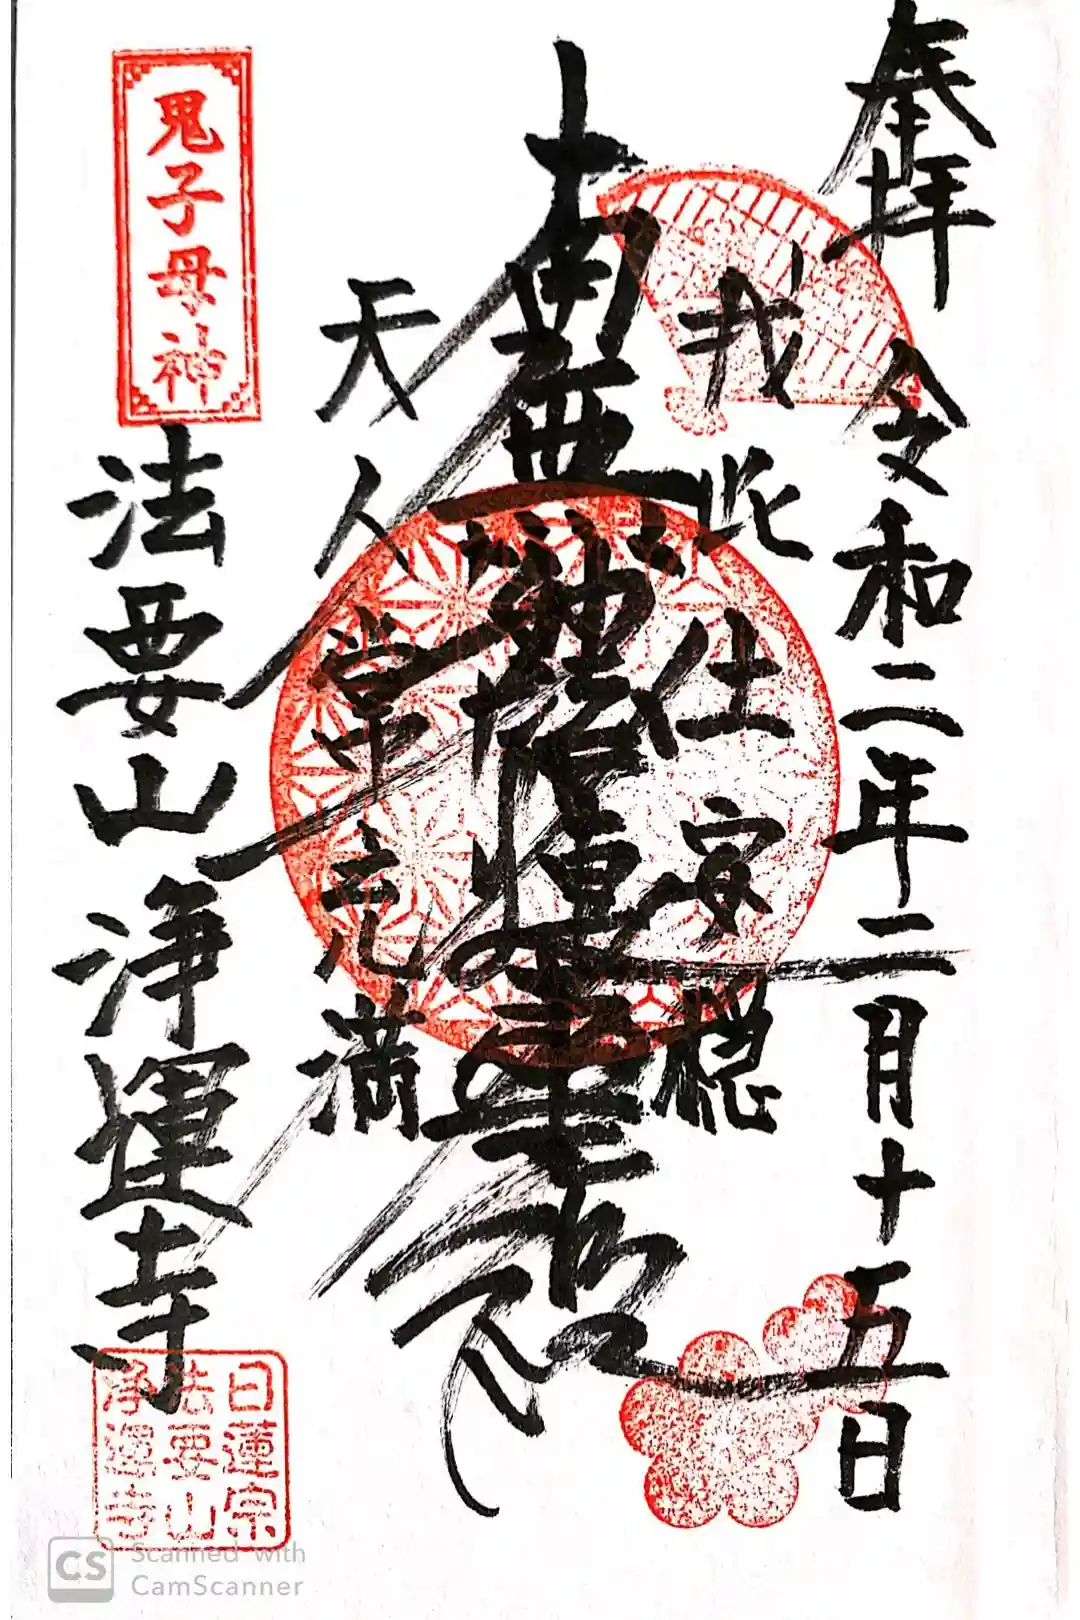 奉拝 令和二年二月十五日
我此土安穏
南無妙法蓮華経
天人常充満
鬼子母神
法要山 浄運寺
日蓮宗
法要山
浄運寺
CS Scanned with
CamScanner